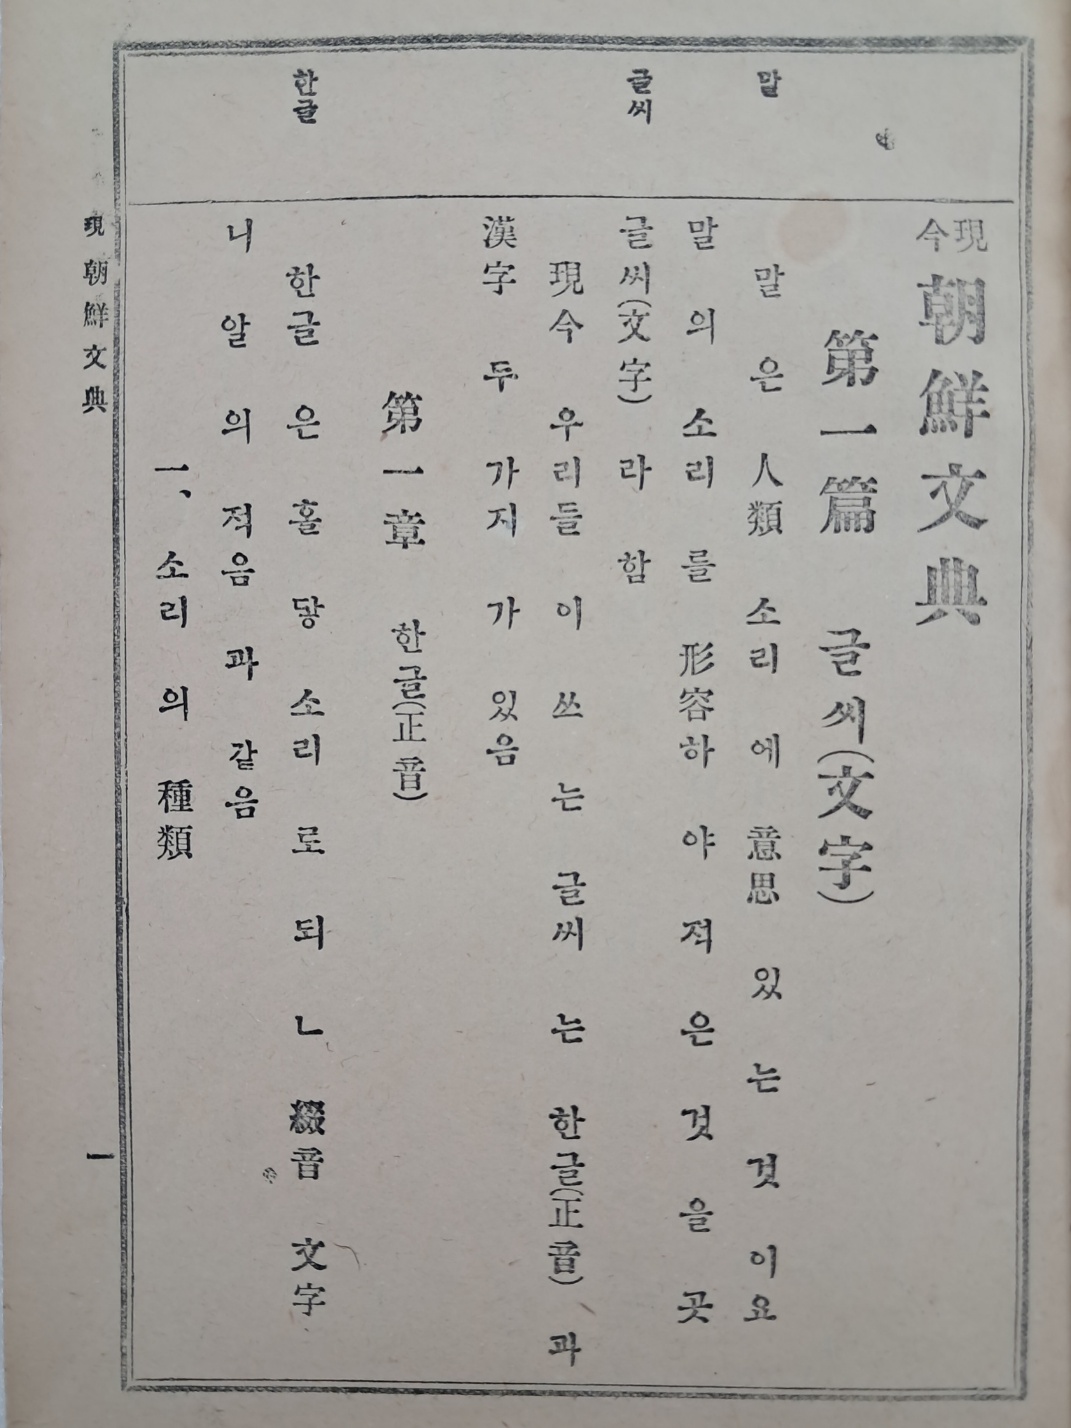 現今 朝鮮文典
第一篇 글씨(文字)
말
말 은 人類 소리 에 意思 있 는 것 이요
말 의 소리 를 形容하 야 적 은 것 을 곳
글씨
글씨(文字) 라 함
現今 우리들 이 쓰 는 글씨 는 한글(正音) 과
漢字 두 가지 가 있음
第一章 한글(正音)
한글
한글 은 홀 닿 소리 로 되 ㄴ 綴音 文字
니 알 의 적음 과 같음
一、소리 의 種類
現朝鮮文典
一